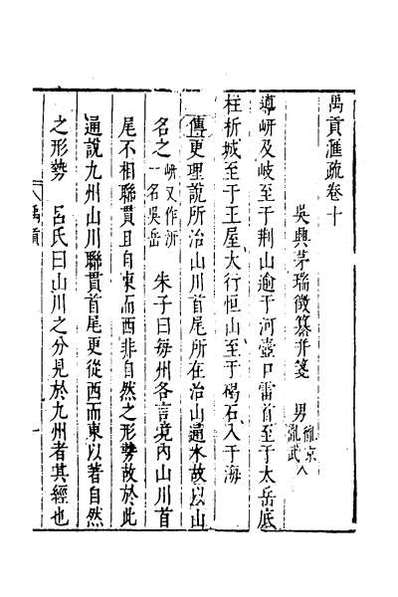 禹貢滙疏卷十
吳興茅瑞徵纂并箋 男
胤京
胤武
導岍及岐至于荆山逾于河壺口雷首至于太岳底
柱析城至于王屋大行恒山至于碣石入于海
傳更理說所治山川首尾所在治山通水故以山
名之 岍又作汧一名吳岳 朱子曰每州各言境內山川首
尾不相聯貫且自東而西非自然之形勢故於此
通說九州山川聯貫首尾更從西而東以著自然
之形勢 呂氏曰山川之分見於九州者其經也
禹貢